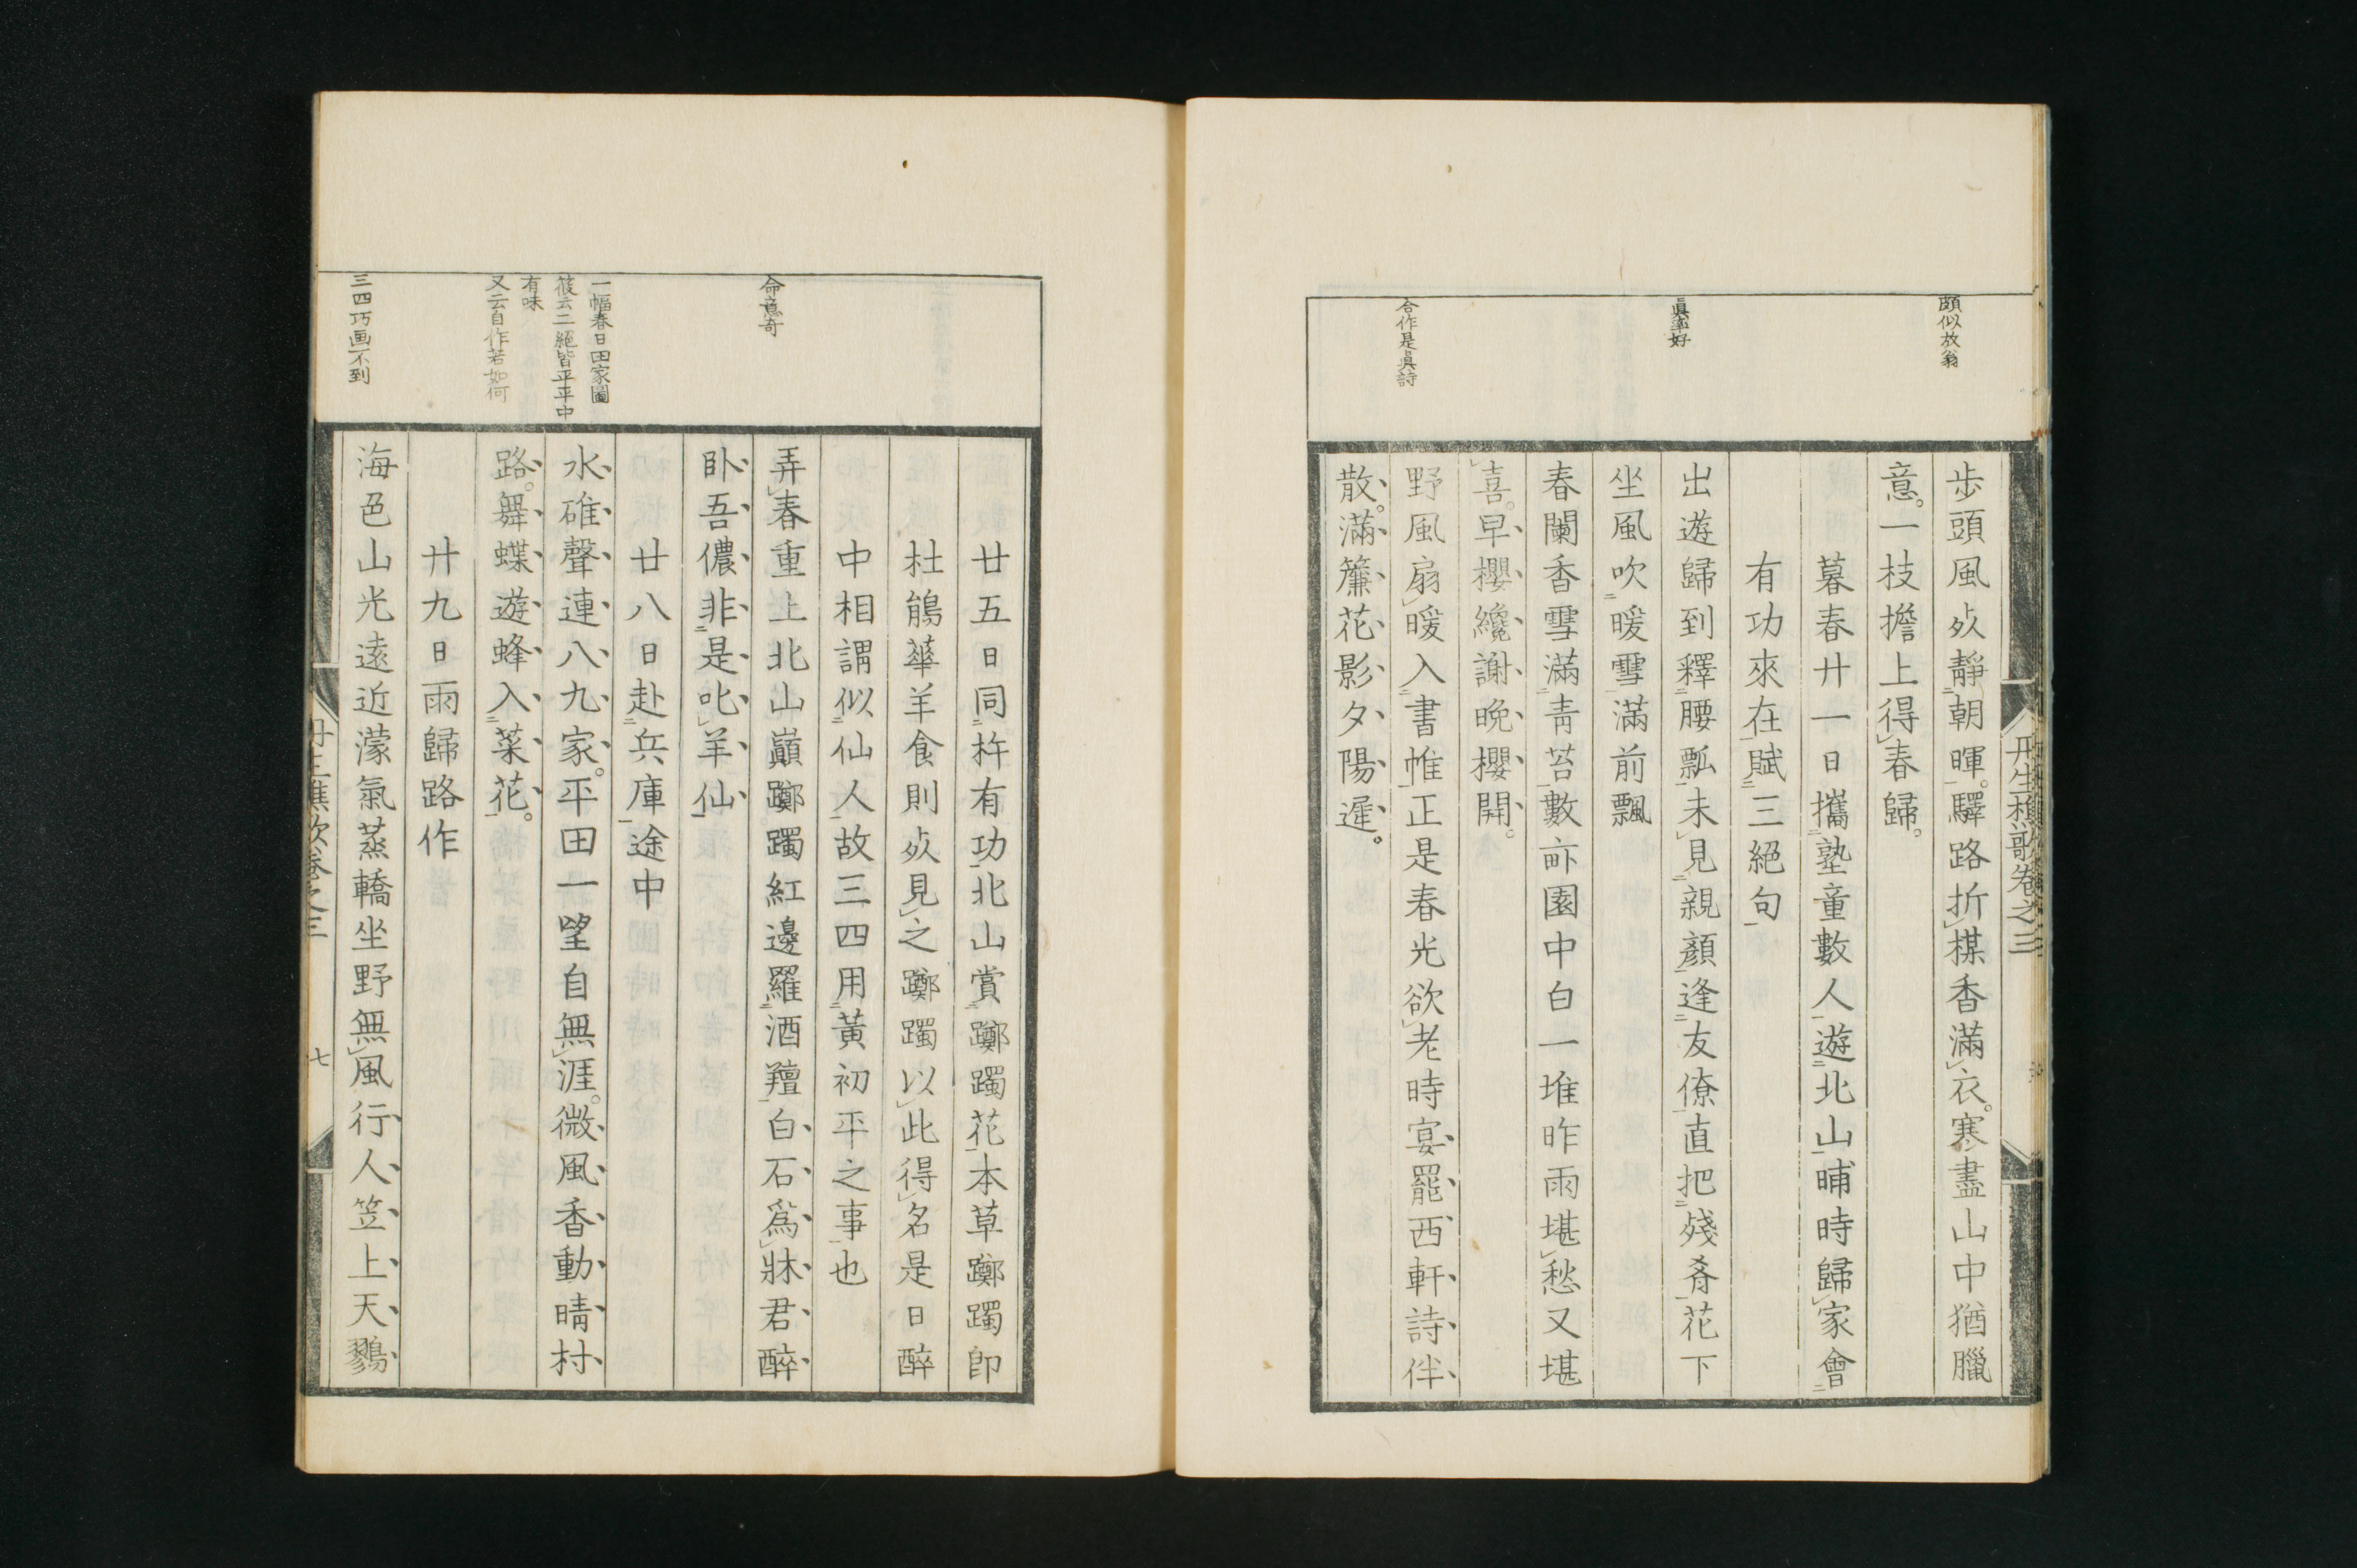 頗似放翁
眞率好
合作是眞詩
歩頭風㸃靜朝暉。驛路折楳香滿衣。寒盡山中猶臘
意。一枝擔上得春歸。
暮春廿一日攜塾童數人遊北山晡時歸家會
有功來在賦三絕句
出遊歸到釋腰瓢未見親顏逢友僚直把殘肴花下
坐風吹暖雪滿前飄
春闌香雪滿青苔數畝園中白一堆昨雨堪愁又堪
喜。早櫻纔謝晩櫻開。
野風扇暖入書帷正是春光欲老時宴罷西軒詩伴
散。滿簾花影夕陽遲。
丹生樵歌卷之三
命意奇
一幅春日田家圖
筱云二絕皆平平中
有味
又云自作若如何
三四巧画不到
廿五日同杵有功北山賞躑躅花本草躑躅卽
杜鵑華羊食則㸃見之躑躅以此得名是日醉
中相謂似仙人故三四用黃初平之事也
弄春重上北山巓躑躅紅邊羅酒羶白石爲牀君醉
臥吾儂非是叱羊仙
廿八日赴兵庫途中
水碓聲連八九家。平田一望自無涯。微風香動晴村
路。舞蝶遊蜂入菜花。
廿九日雨歸路作
海色山光遠近濛氣蒸轎坐野無風行人笠上天鷚
丹生樵歌卷之三
七